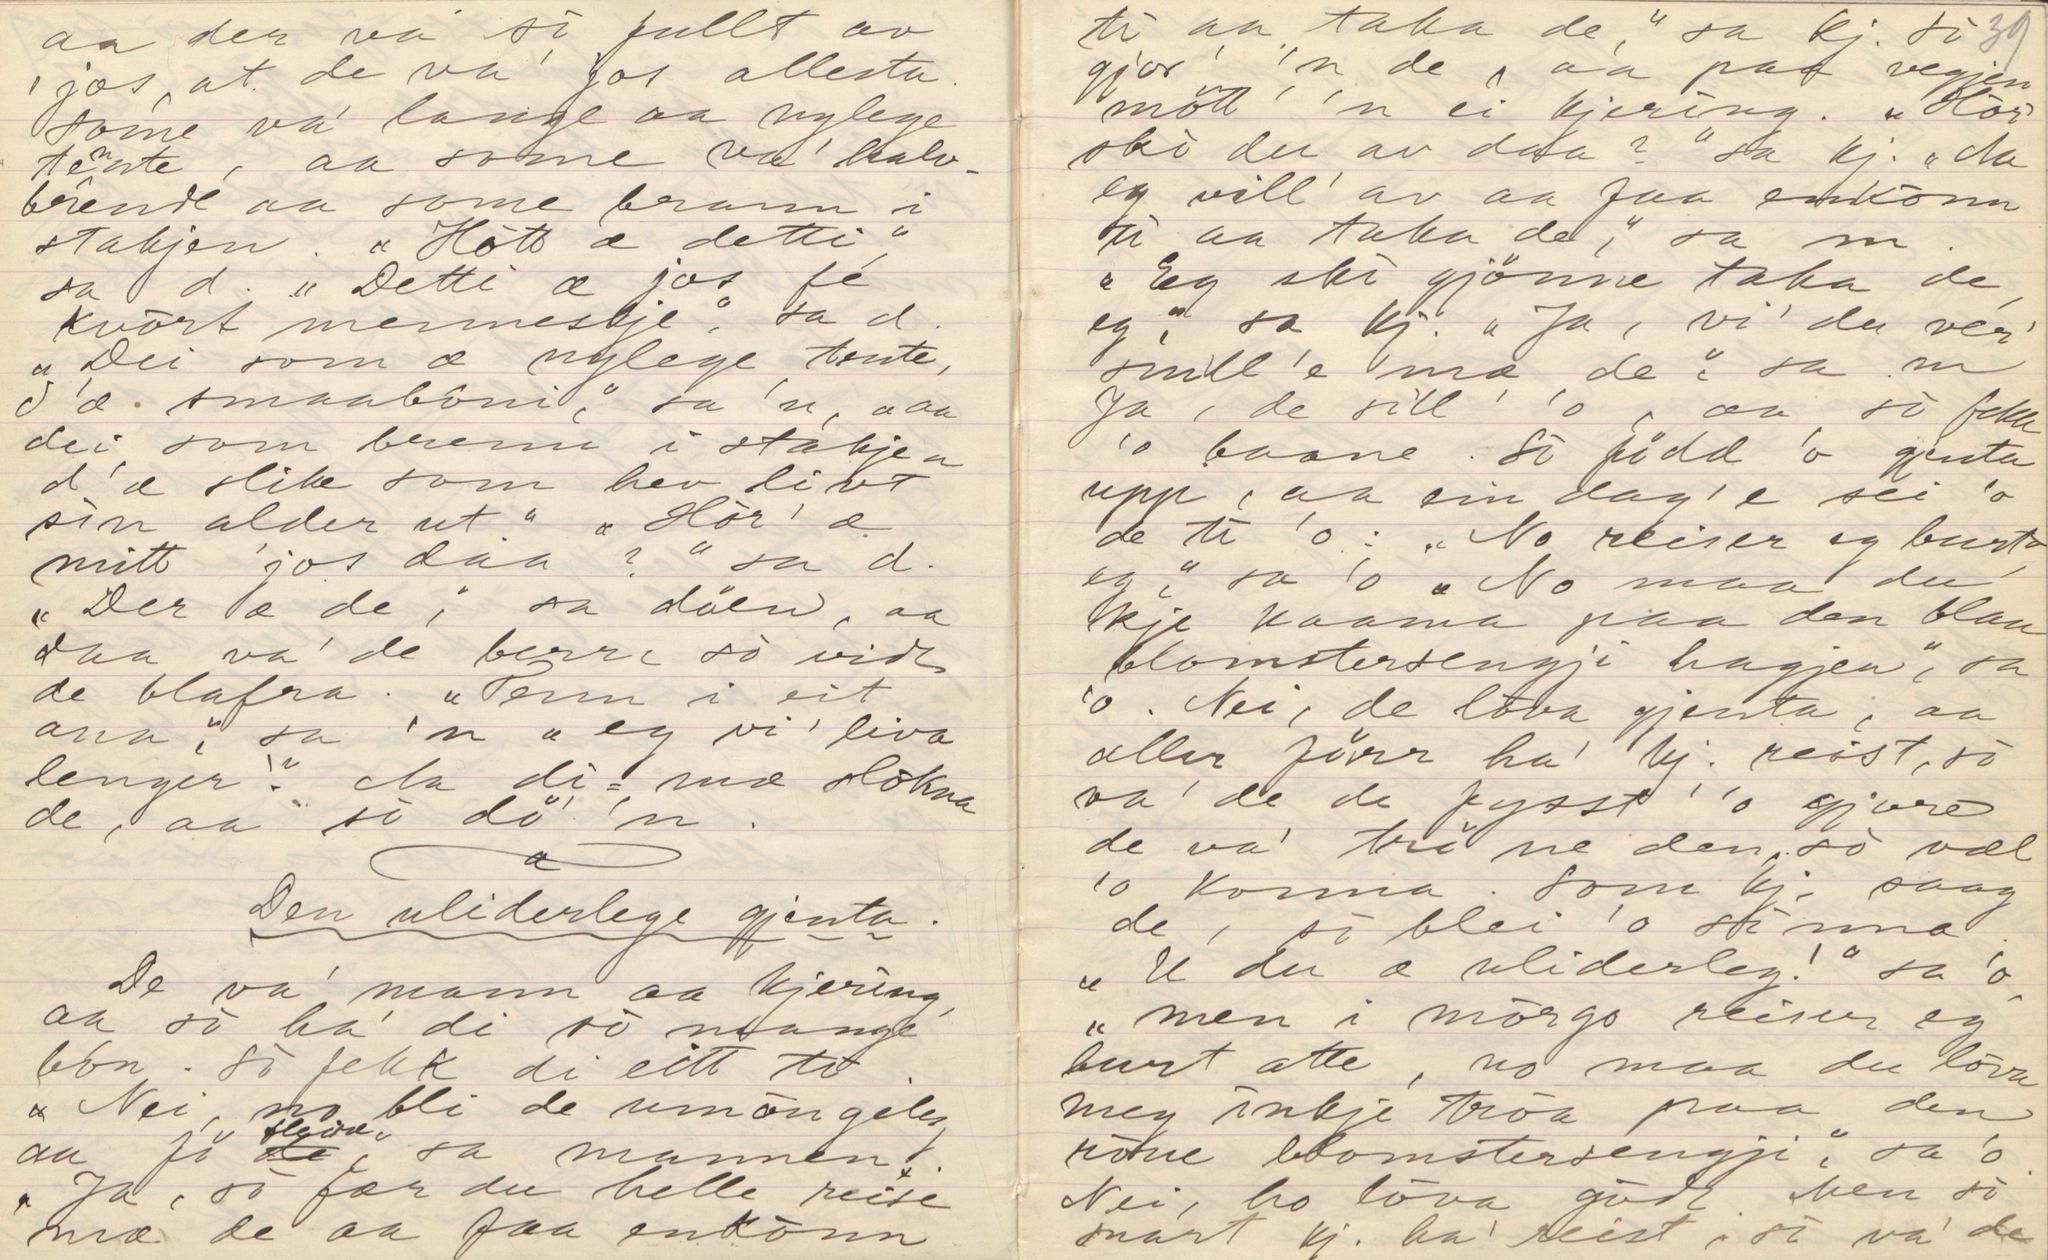 aa der va' sò fullt av
'jos, at de va' jos allesta.
Sòme va' lange aa nylege
tende, aa some va' halv-
brende aa some brann i
stakjen. „Hòtt æ detti,"
sa d. „Detti æ jos fé
kvòrt menneskje", sa d.
„Dei som æ nylege tente,
d'æ smaabòni," sa 'n, „aa
dei som brenn i stakjen
d'æ slike som hev livt
sin alder ut" „Hòr' æ
mitt jos daa?" sa d.
„Der æ de," sa döen, aa
daa va' de berre sò vidt
de blafra. „Tenn i eit
ana," sa 'n „eg vi' liva
lenger". Aa di-mæ slòkna
de, aa sò dö' 'n.
Den uliderlege gjenta.
De va' mann aa kjering,
aa sò ha' di sò mange
bòn. Sò fekk di eitt te.
„Nei, no bli de umòngeleg
aa fö sa mannen.
„Ja, sò fær du helle reise
mæ de aa faa enkònn
39
ti aa taka de," sa kj. Sò
gjor' 'n de, aa paa vegjen
mött' 'n ei kjering. „Hòr
ski du av daa?" sa kj. „Aa
eg vill' av aa faa enkònn
ti aa taka de," sa m.
„Eg ski gjönne taka de,
eg", sa kj. „Ja, vi' du ver'
snill'e mæ de" sa m
Ja, de sill' 'o, aa sò fekk
'o baane. Sò född 'o gjenta
upp, aa ein dag'e sei 'o
de ti 'o: „No reiser eg burt,
eg", sa 'o „No maa du
'kje kaama paa den blaa
blomstersengji hagjen", sa
'o. Nei, de lòva gjenta, aa
aller förr ha' kj. reist, sò
va' de de fysst' 'o gjore
de va' trö ne den, sò væl
'o konna. Som kj. saag
de, sò blei 'o sinna.
„U du æ uliderleg!" sa 'o,
„men i mòrgo reiser eg
burt atte, no maa du lòva
meg inkje tròa paa den
röue blomstersengji", sa 'o.
Nei, ho lòva godt. Men sò
snart kj. ha' reist, sò va' de